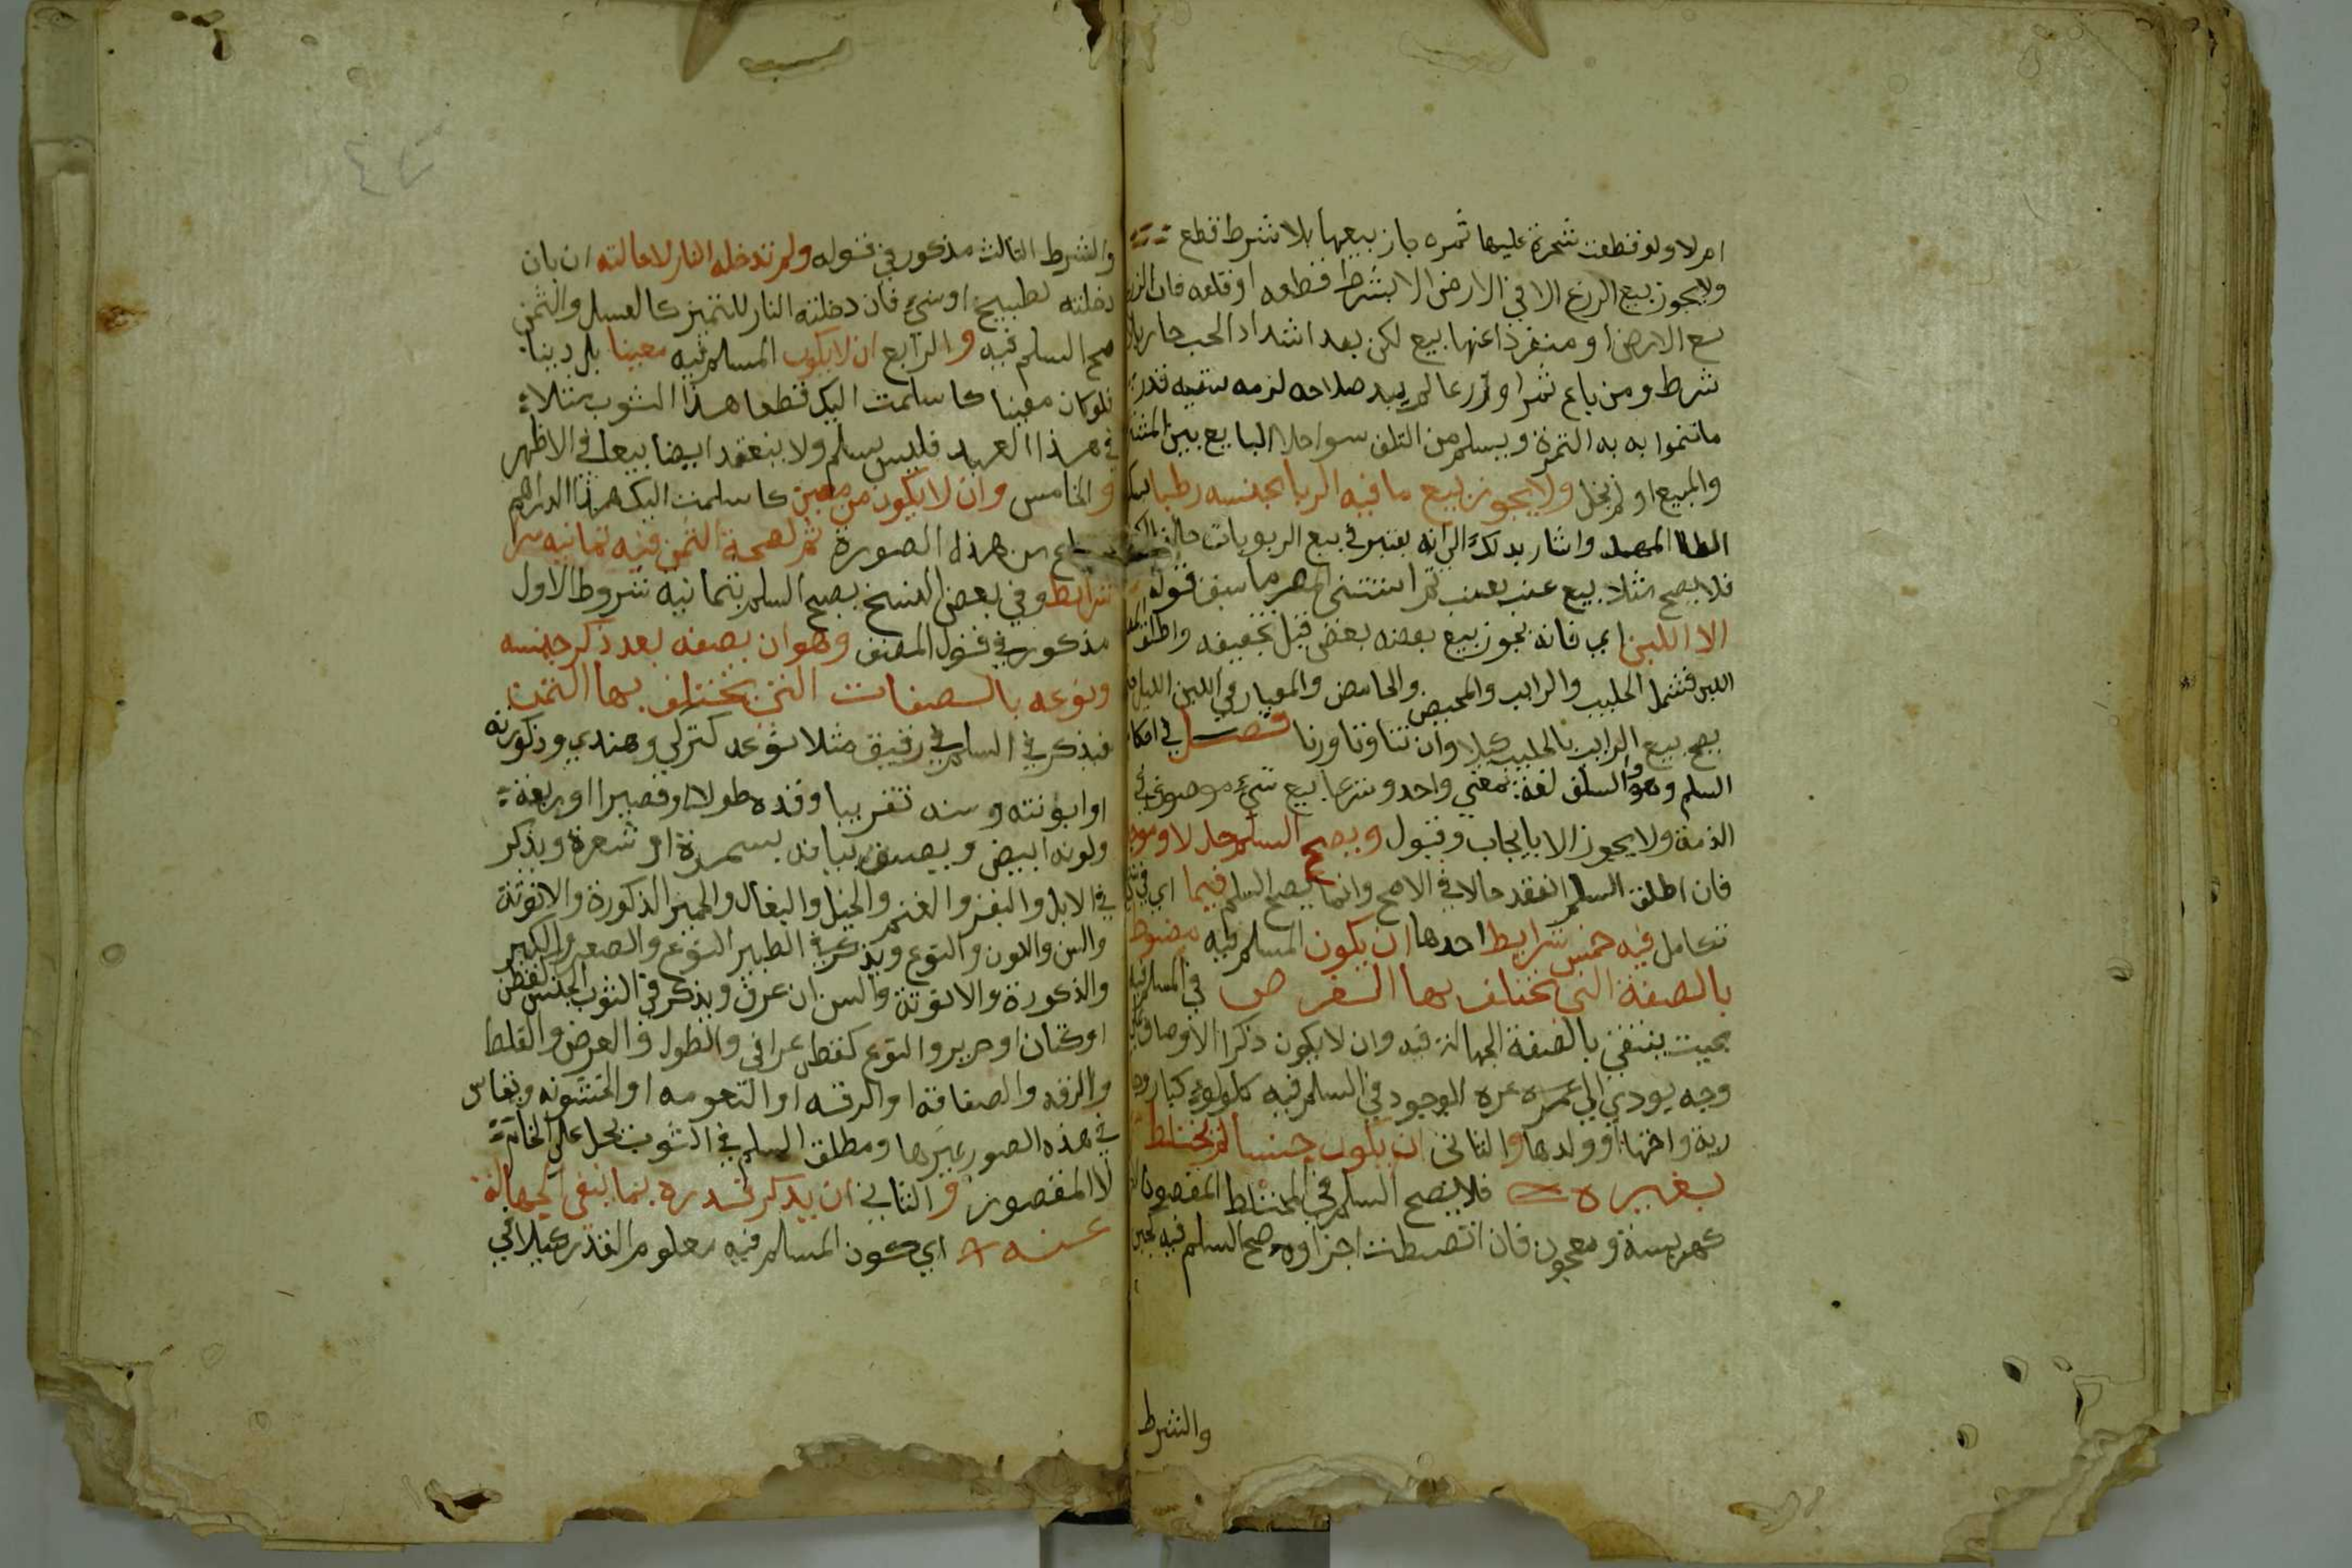 ام لا ولو قطعت شجرة عليها ثمره جاز بيعها بلا شرط قطع
ولا يجوز بيع الزرع الا في الارض الا بشرط قطعه او قلعه فان
بيع الارض او منفردا عنها بيع لكن بعد اشتداد الحب جاز بلا
شرط ومن باع ثمرا او زرعا لم يبد صلاحه لزمه سقيه قدر
ما تنموا به به الثمرة ويسلم من التلف سوا خلا البايع بين المشتري
والمبيع او لم يخل ولا يجوز بيع ما فيه الربا بجنسه رطبا
واشار بذلك الي انه يعتبر في بيع الربويات حالة
فلا يصح مثلا بيع عنب بعنب ثم استثني المص مما سبق قوله
الا اللبن اي فانه يجوز بيع بعضه ببعض قبل تجفيفه واطلق
اللبن فشمل الحليب والرايب والمخيض والحامض والمعيار في اللبن الكيل
يصح بيع الرايب بالحليب كيلا وان تفاوتا وزنا فصل في احكام
السلم وهو والسلف لغة بمعني واحد وشرعا بيع شيء موصوف في
الذمة ولا يجوز الا بايجاب وقبول ويصح السلم حالا وموجلا
فان اطلق السلم انعقد حالا في الاصح وانما يصح السلم فيما اي في شي
تكامل فيه خمس شرايط احدها ان يكون المسلم فيه مضبوطا
بالصفة التي يختلف بها الغرض في المسلم فيه
بحيث ينتفي بالصفة الجهالة فيه وان لا يكون ذكر الاوصاف علي
وجه يودي الي عزه الوجود في السلم فيه كلولوء كبار
رية واختها او ولدها والثاني ان يكون جنسا لم يختلط
بغيره فلا يصح السلم في المختلط المقصود
كهريسة ومعجون فان انضبطت اجزاوه صح السلم فيه كجبن
والشرط
والشرط الثالث مذكور في قوله ولم تدخله النار لاحالته اي بان
دخلته لطبخ او شي فان دخلته النار للتمييز كالعسل والسمن
صح السلم فيه والرابع ان لا يكون المسلم فيه معينا بل دينا
فلو كان معينا كاسلمت اليك قطعا هذا الثوب مثلا
في هذا العبد فليس بسلم ولا ينعقد ايضا بيعا في الاظهر
والخامس وان لا يكون من معين كاسلمت اليك هذا الدراهم
من هذه الصورة ثم لصحة الثمن فيه ثمانيه
شرايط وفي بعض النسخ يصح السلم بثمانيه شروط الاول
مذكور في قول المصنف وهو ان يصفه بعد ذكر جنسه
ونوعه بالصفات التي يختلف بها الثمن
فيذكر في السلم في رقيق مثلا نوعه كتركي وهندي وذكورته
او انوثته وسنه تقريبا وقده طولا او قصيرا او ربعة
ولونه ابيض ويصف بياضه بسمرة او شقرة ويذكر
في الابل والبقر والغنم والخيل والبغال والحمير الذكورة والانوثة
والسن واللون والنوع ويذكر في الطير النوع والصغر والكبر
والذكورة والانوثة والسن ان عرف ويذكر في الثوب الجنس كقطن
او كتان او حرير والنوع كقطن عراقي والطول والعرض والغلظ
والرقه والصفاقة او الرقه او النعومه او الخشونه ويقاس
في هذه الصور غيرها ومطلق السلم في الثوب يحمل علي الخام
لا المقصور والثاني ان يذكر قدره بما ينفي الجهالة
عنه اي كون المسلم فيه معلوم القدر كيلا في